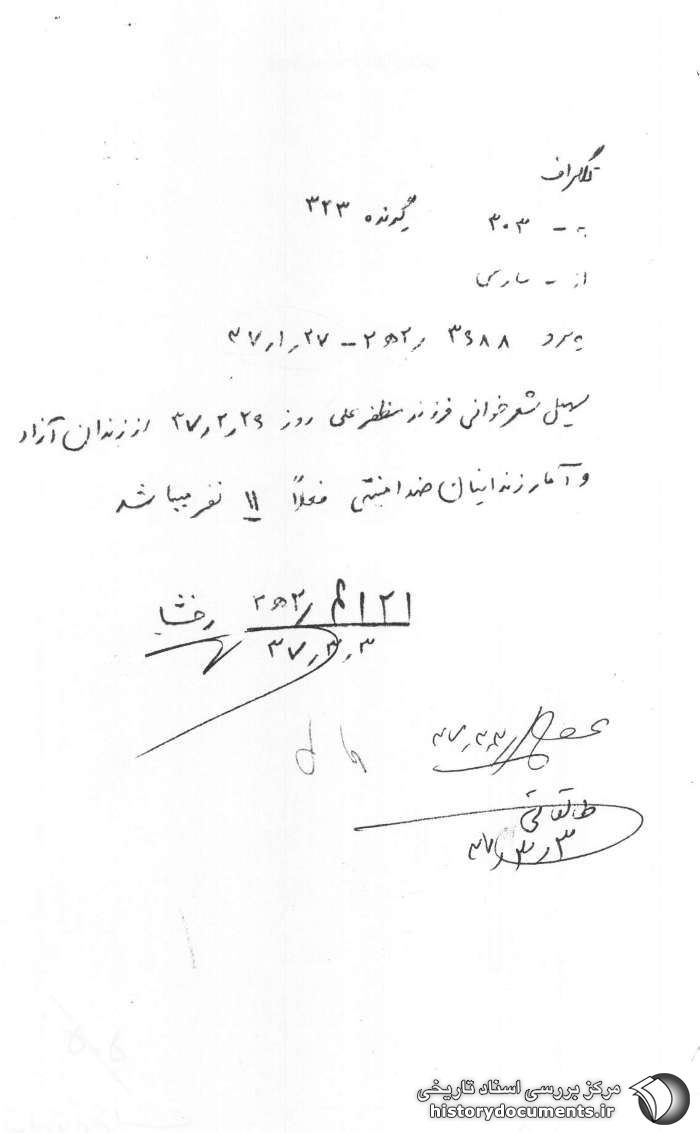 تلگراف
به - ۳۰۳ گیرنده ۳۲۳
از - ساری
پیرو ۳۶۸۸ / ۲ﻫ۲ - ۲۷ /۱/ ۴۷
سهیل شعرخوانی فرزند مظفرعلی روز ۲۶/۲/۴۷ از زندان آزاد
و آمار زندانیان ضدامنیتی فعلاً ۱۱ نفر میباشد
۲ﻫ۲/
۴۷/۳/۳
طالقانی
۴۷/۳/۳
مرکز بررسی اسناد تاریخی
historydocuments.ir